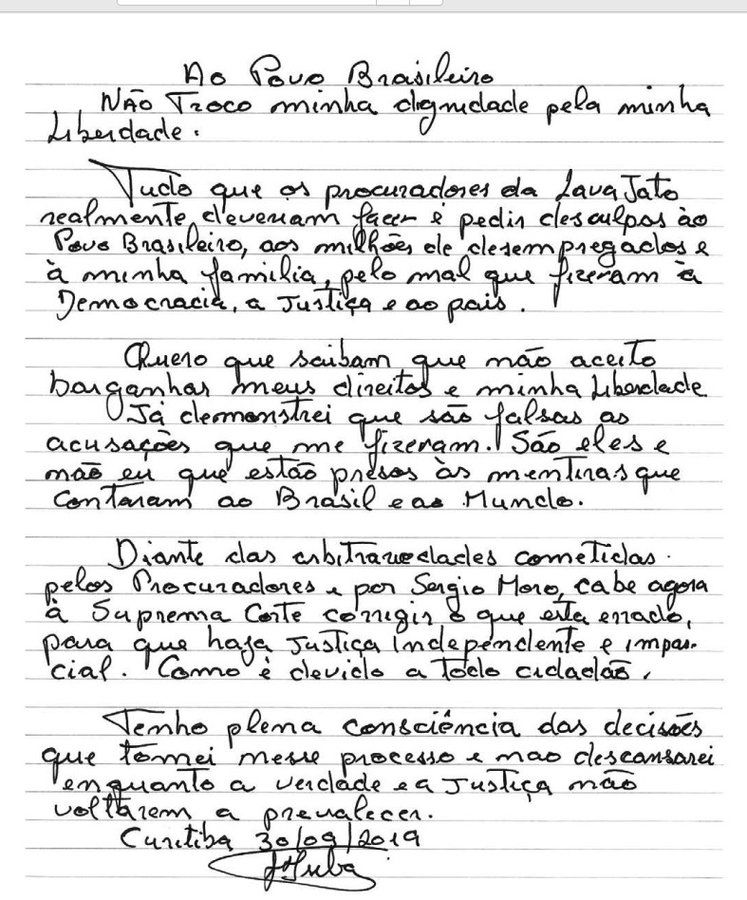 Ao Povo Brasileiro
Não Troco minha dignidade pela minha
Liberdade.
Tudo que os procuradores da Lava Jato
realmente deveriam fazer é pedir desculpas ao
Povo Brasileiro, aos milhões de desempregados e
à minha familia, pelo mal que fizeram à
Democracia, a Justiça e ao pais.
Quero que saibam que não aceito
barganhar meus direitos e minha Liberdade
Já demonstrei que são falsas as
acusações que me fizeram. São eles e
não eu que estão presos às mentiras que
contaram ao Brasil e ao Mundo.
Diante das arbitrariedades cometidas
pelos Procuradores e por Sergio Moro, cabe agora
à Suprema Corte corrigir o que esta errado,
para que haja Justiça independente e impar-
cial. Como é devido a todo cidadão.
Tenho plena consciência das decisões
que tomei nesse processo e não descansarei
enquanto a verdade e a Justiça não
voltarem a prevalecer.
Curitiba 30/09/2019